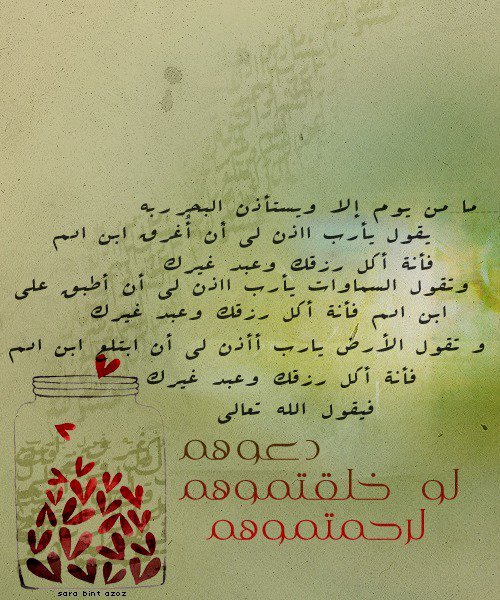 ما من يوم إلا ويستأذن البحرربه
يقول يأرب ااذن لى أن أغرق ابن ادم
فأنة أكل رزقك وعبد غيرك
وتقول السماوات يأرب ااذن لى أن أطبق على
ابن ادم فأنة أكل رزقك وعبد غيرك
و تقول الأرض يارب أأذن لى أن ابتلع ابن ادم
فأنة أكل رزقك وعبد غيرك
فيقول الله تعالى
دعوهم
لو خلقتموهم
لرحمتموهم
sara bint azoz